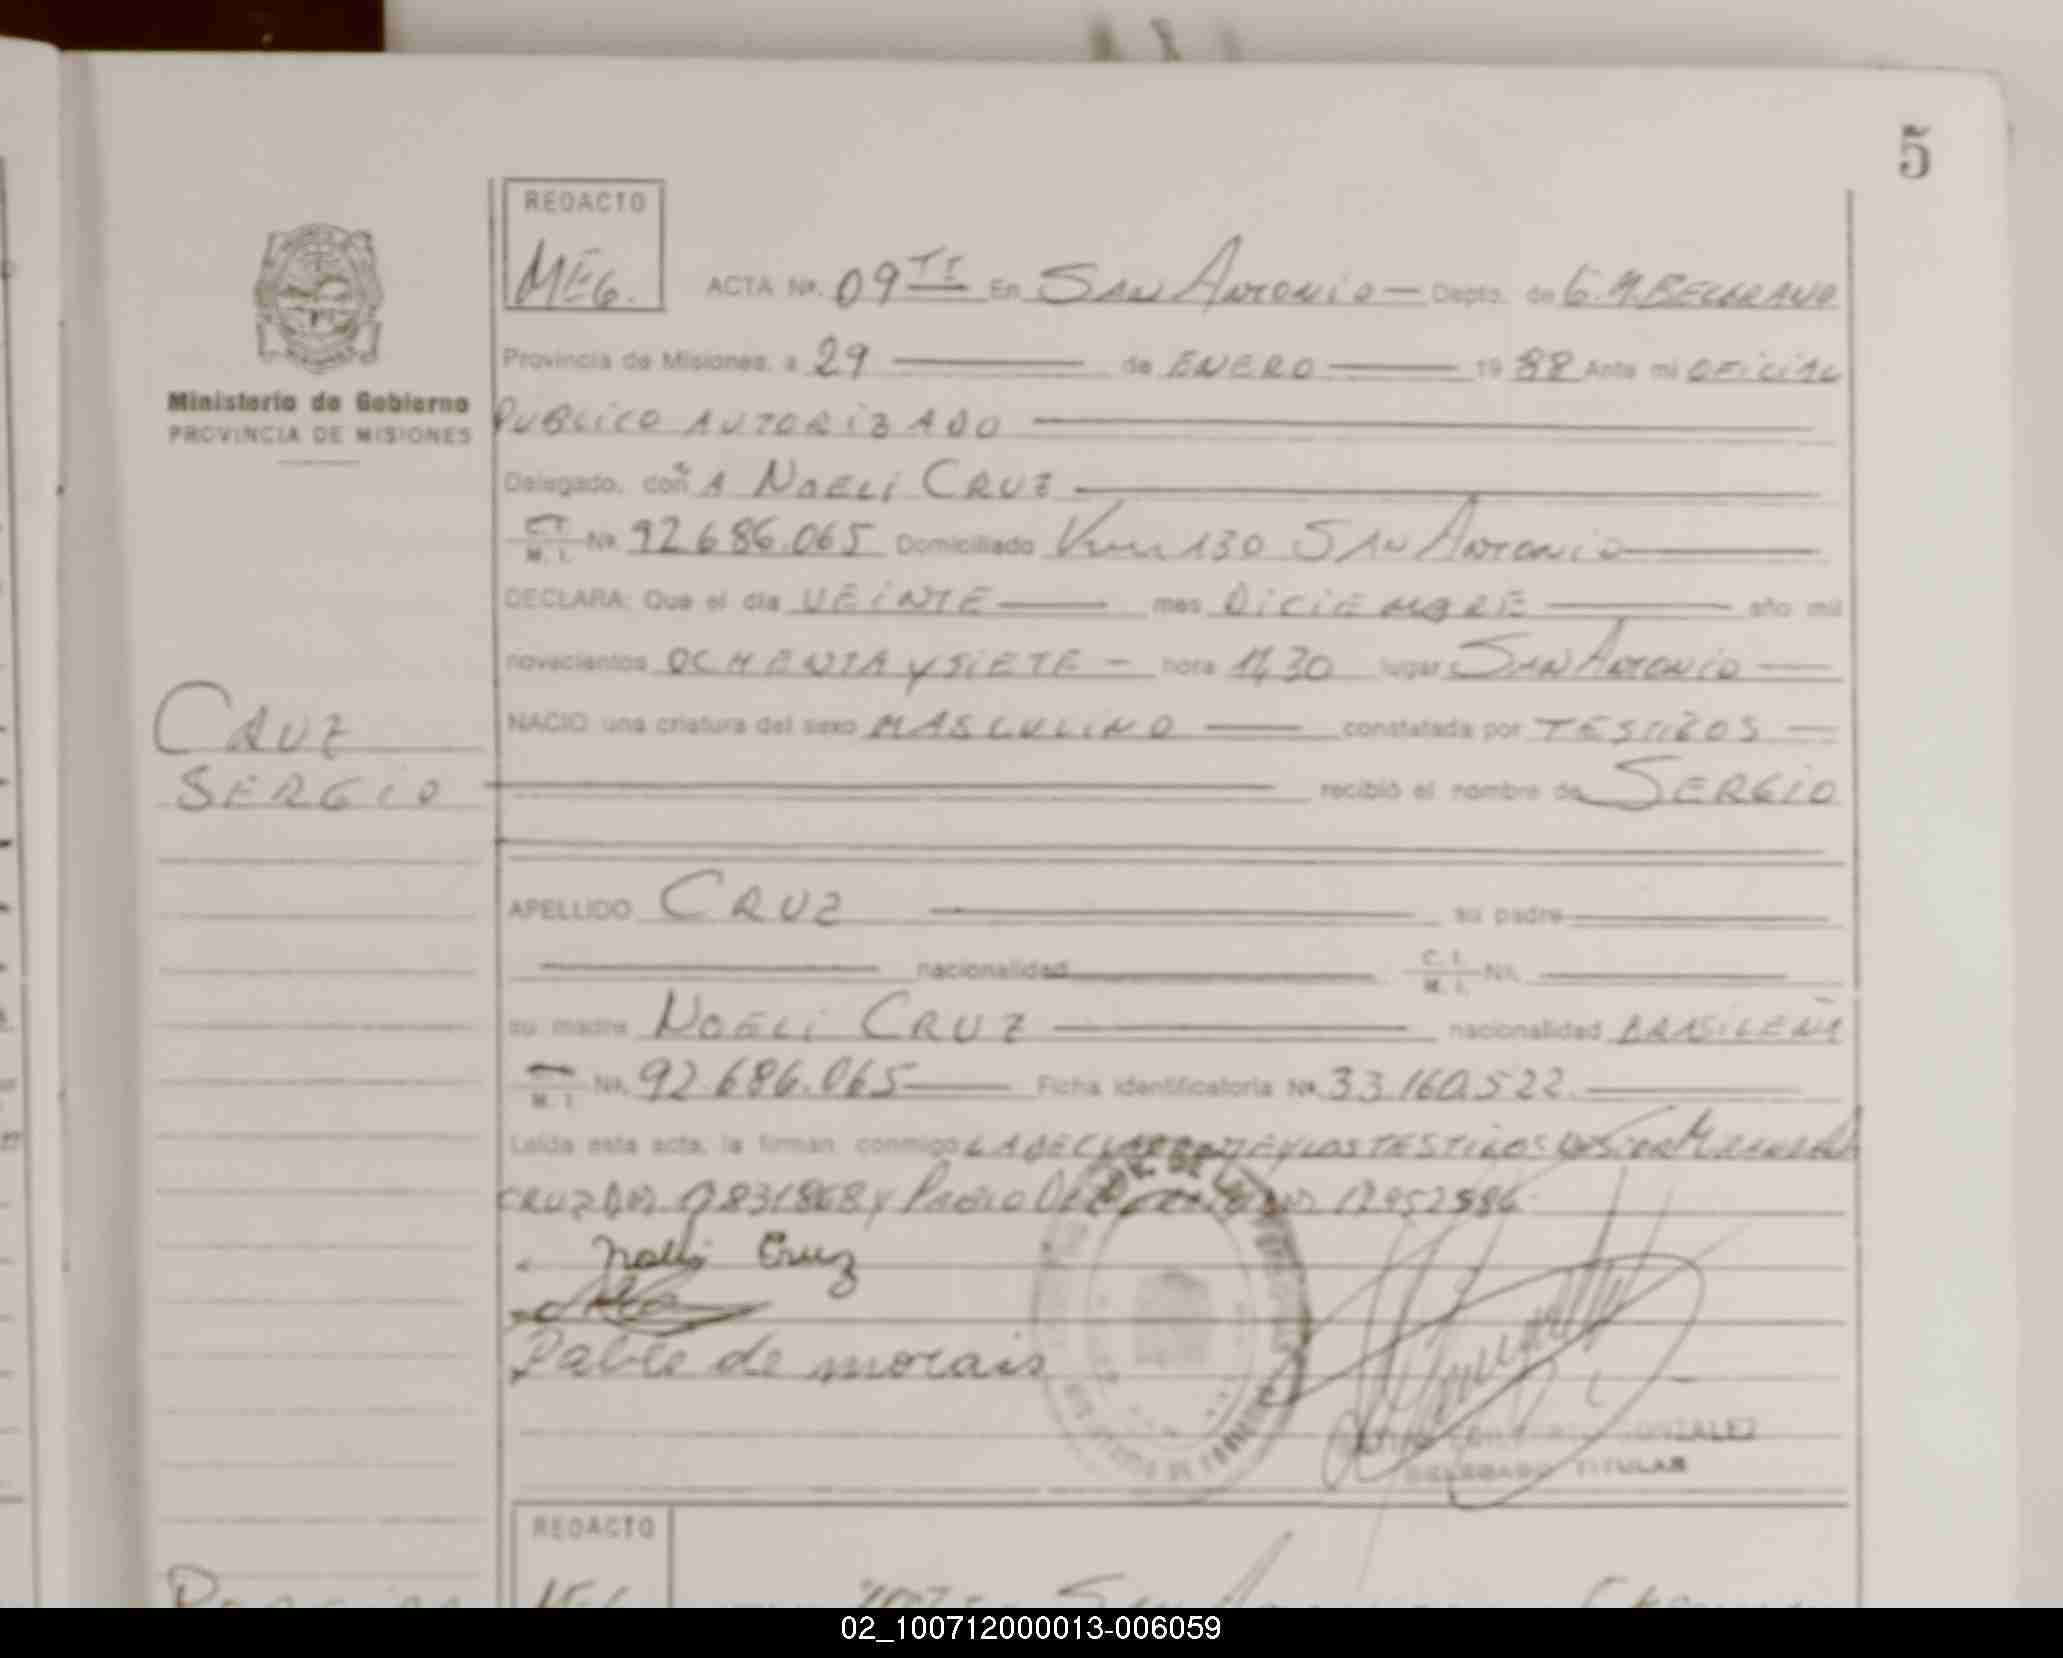 5
REDACTO
MEG.
ACTA Nº. 09 TI En SAN ANTONIO — Depto. de G. M. BELGRANO
Provincia de Misiones, a 29 de ENERO 19 88 Ante mi OFICIAL
Ministerio de Gobierno
PROVINCIA DE MISIONES
PUBLICO AUTORIZADO
Delegado, doñA NOELI CRUZ
M. I. Nº. 92.686.065 Domiciliado Km 130 SAN ANTONIO
DECLARA: Que el día VEINTE mes DICIEMBRE año mil
novecientos OCHENTA y SIETE — hora lugar SAN ANTONIO
NACIO una criatura del sexo MASCULINO constatada por TESTIGOS
CRUZ
SERGIO
recibió el nombre de SERGIO
APELLIDO CRUZ su padre
nacionalidad C. I. M. I. Nº.
su madre NOELI CRUZ nacionalidad BRASILEÑA
M. I. Nº. 92.686.065 Ficha identificatoria Nº. 33.160.522.
Leída esta acta, la firman conmigo LA DECLARANTE Y LOS TESTIGOS
CRUZ y PABLO
Noeli Cruz
Pablo de morais
GONZALEZ
DELEGADO TITULAR
REDACTO
02_100712000013-006059